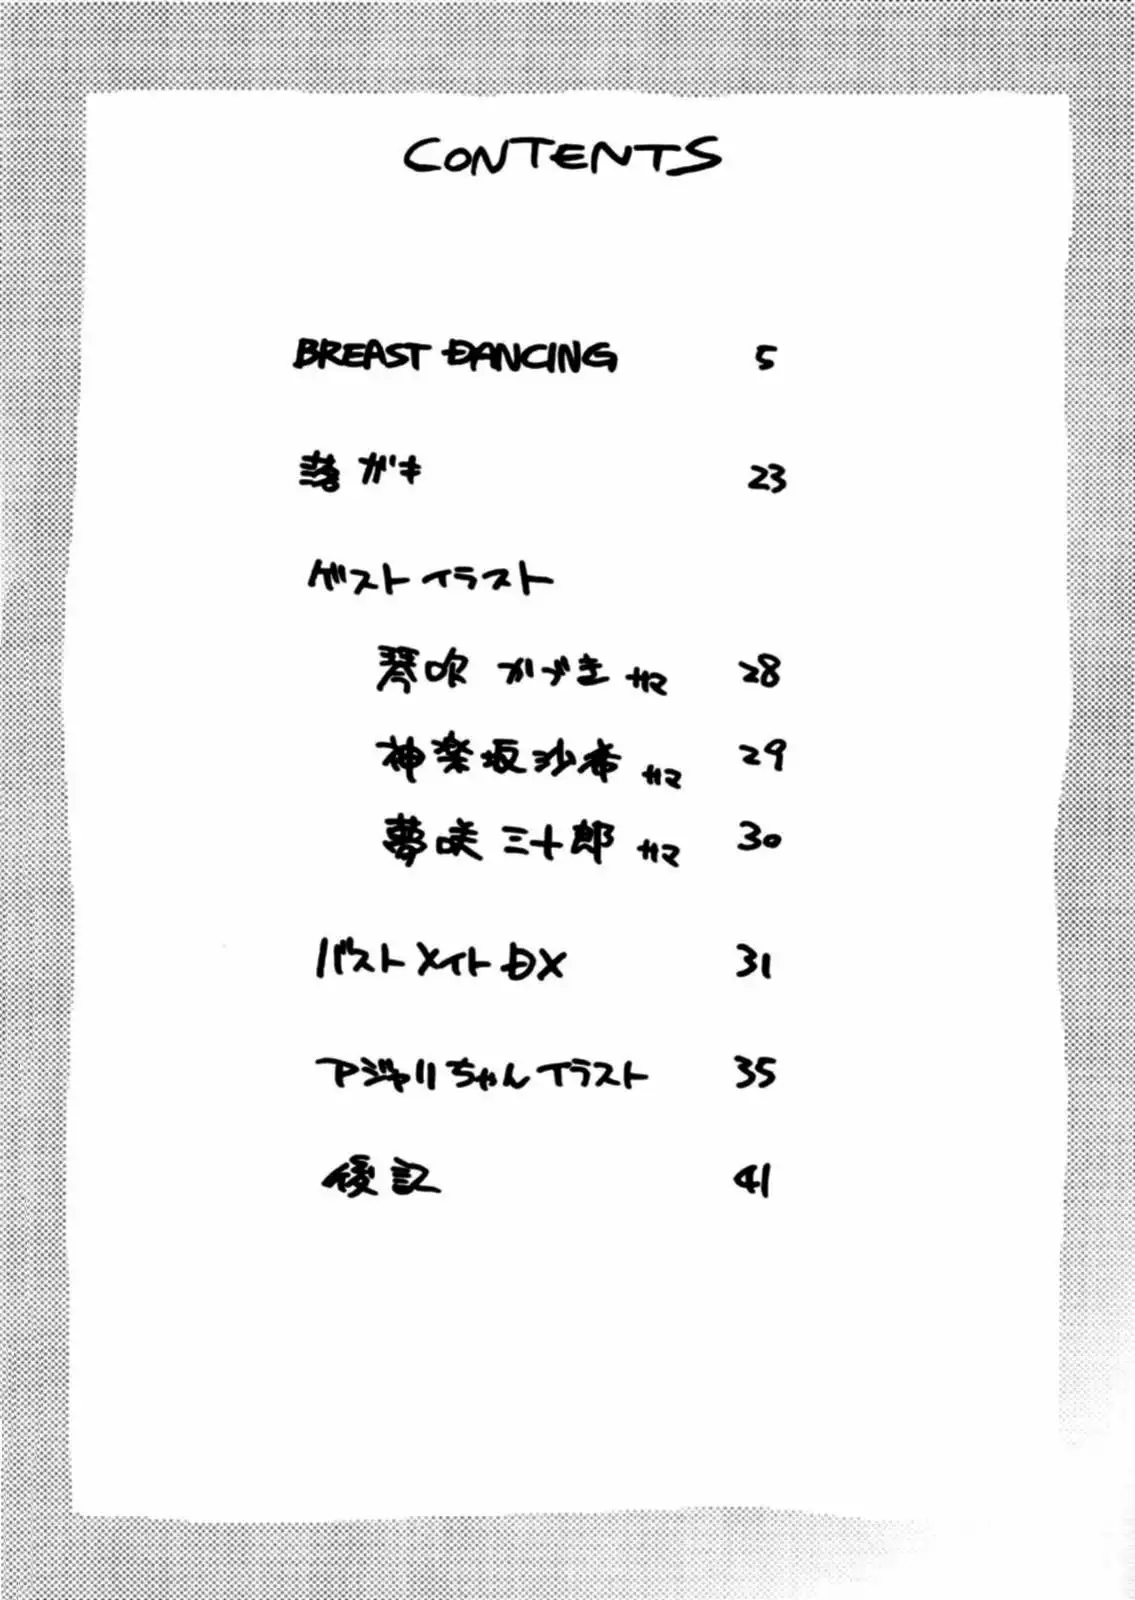 CONTENTS
BREAST DANCING 5
落ガキ 23
ゲストイラスト
琴吹 かづき サマ 28
神楽坂沙希 サマ 29
夢咲 三十郎 サマ 30
バストメイトDX 31
アジャリちゃんイラスト 35
後記 41